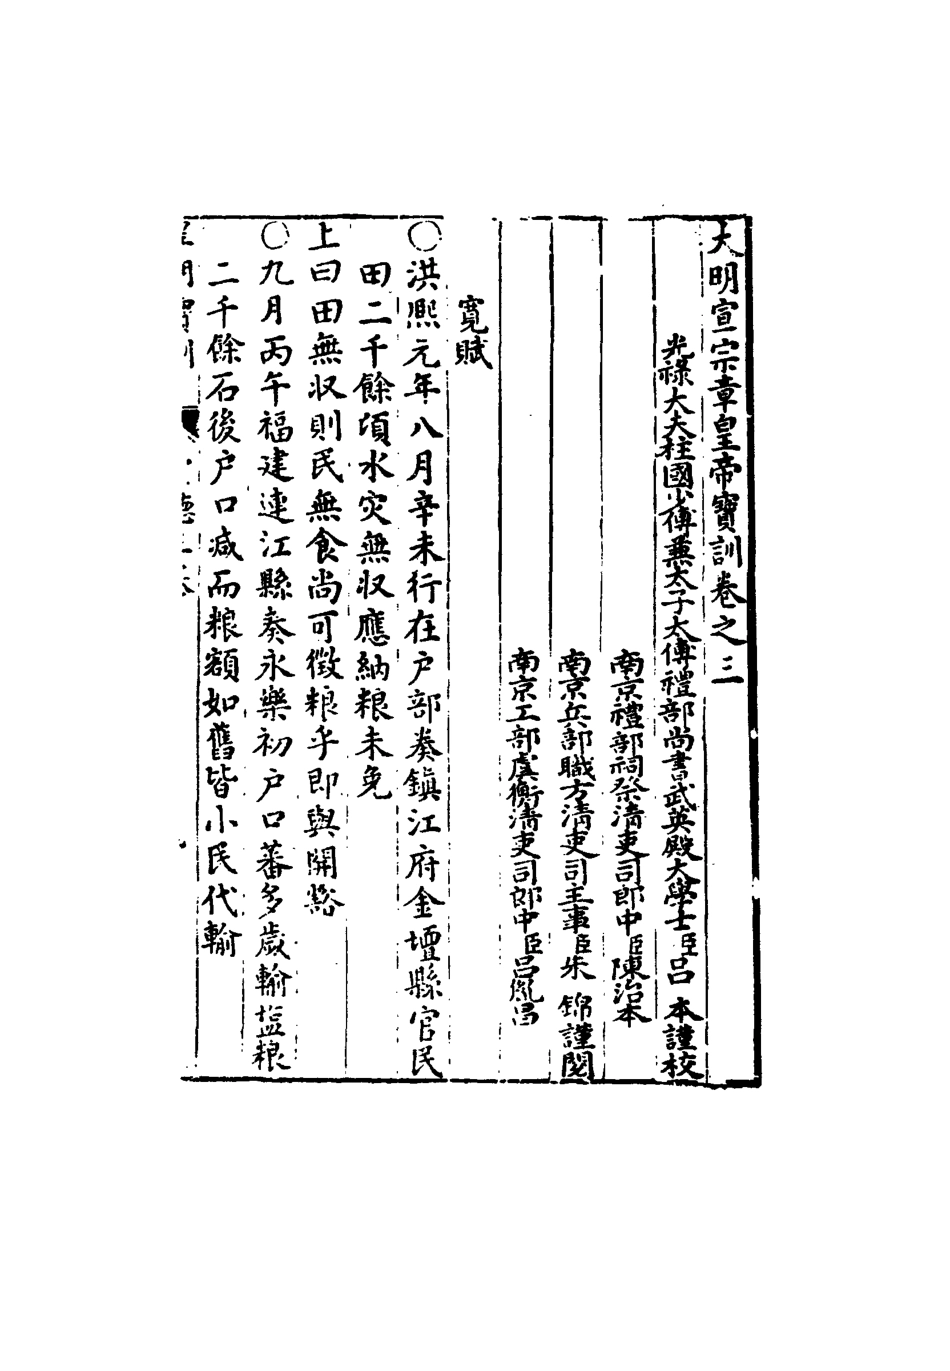 大明宣宗章皇帝寶訓卷之三
光祿大夫柱國少傅兼太子太傅禮部尚書武英殿大學士臣呂 本謹校
南京禮部祠祭清吏司郎中臣陳治本
南京兵部職方清吏司主事臣朱 錦謹閱
南京工部虞衡清吏司郎中臣呂胤昌
寬賦
〇洪熙元年八月辛未行在户部奏鎮江府金壇縣官民
田二千餘頃水灾無収應納粮未免
上曰田無収則民無食尚可徵粮乎即與開豁
〇九月丙午福建連江縣奏永樂初户口蕃多歲輸塩粮
二千餘石後户口减而粮額如舊皆小民代輸